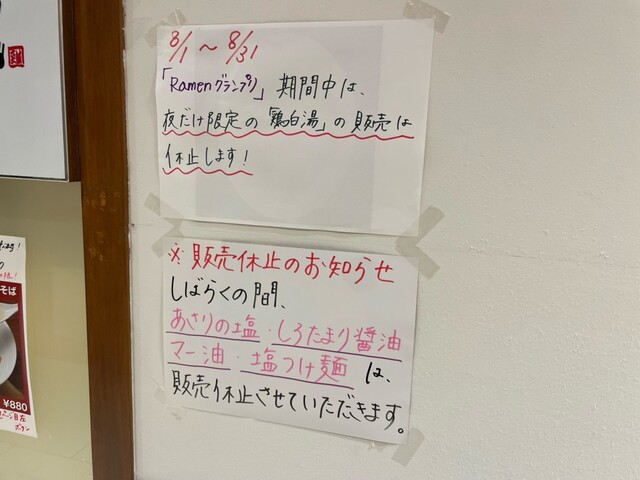 8/1 ～ 8/31
「Ramenグランプリ」期間中は、
夜だけ限定の「鶏白湯」の販売は
休止します!
※販売休止のお知らせ
しばらくの間、
あさりの塩・しろたまり醤油
マー油・塩つけ麺は、
販売休止させていただきます。
そば
¥880
ボタン